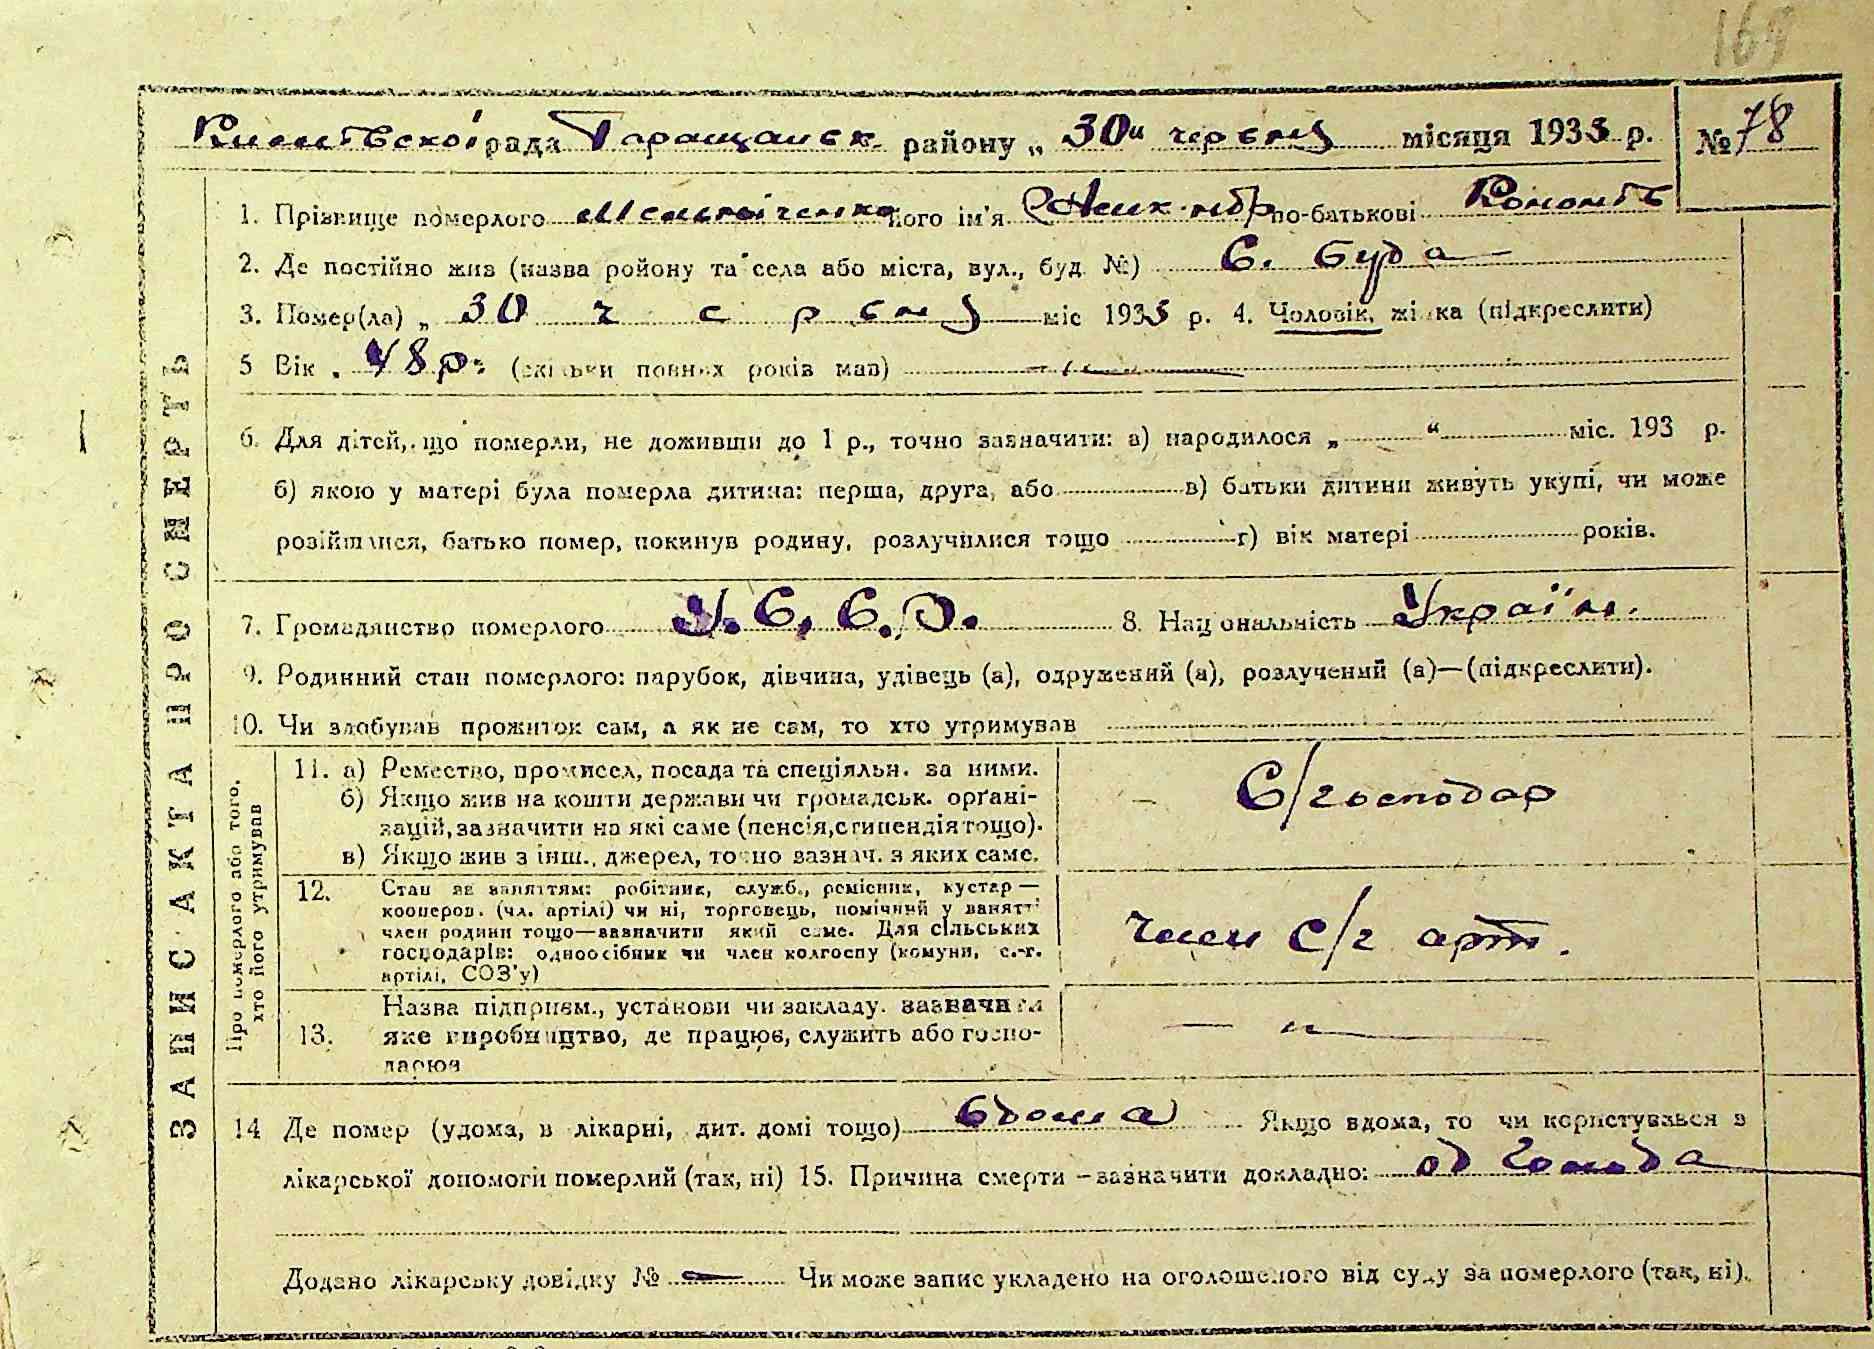 169
рада Таращанськ. району „30" червня місяця 1933 р. № 78
1. Прізвище померлого Мельніченко його ім'я по-батькові
2. Де постійно жив (назва ройону та села або міста, вул., буд. №) С. Буда
3. Помер(ла) „ 30 червня міс 1933 р. 4. Чоловік, жінка (підкреслити)
5 Вік . 48 р. (скільки повних років мав) — " —
6. Для дітей, що померли, не доживши до 1 р., точно зазначити: а) народилося „ “ міс. 193 р.
б) якою у матері була померла дитина: перша, друга, або в) батьки дитини живуть укупі, чи може
розійшлися, батько помер, покинув родину, розлучилися тощо г) вік матері років.
7. Громадянство померлого У.С.С.Р. 8. Національність Україн.
9. Родинний стан померлого: парубок, дівчина, удівець (а), одружений (а), розлучений (а)—(підкреслити).
10. Чи здобував прожиток сам, а як не сам, то хто утримував
ЗАПИС АКТА ПРО СМЕРТЬ
Про померлого або того,
хто його утримував
11. а) Ремество, промисел, посада та спеціяльн. за ними.
б) Якщо жив на кошти держави чи громадськ. орґані-
зацій, зазначити на які саме (пенсія, стипендія тощо).
в) Якщо жив з інш., джерел, точно зазнач. з яких саме.
— С/господар
12. Стан за заняттям: робітник, служб., ремісник, кустар —
кооперов. (чл. артілі) чи ні, торговець, помічний у занятті
член родини тощо—зазначити який саме. Для сільських
господарів: одноосібник чи член колгоспу (комуни, с.-г.
артілі, СОЗ'у)
член с/г арт.
13. Назва підприєм., установи чи закладу. зазначити
яке виробництво, де працює, служить або госпо-
дарює
— " —
14 Де помер (удома, в лікарні, дит. домі тощо) вдома Якщо вдома, то чи користувався з
лікарської допомоги померлий (так, ні) 15. Причина смерти – зазначити докладно: од голода
Додано лікарську довідку № — Чи може запис укладено на оголошеного від суду за померлого (так, ні).